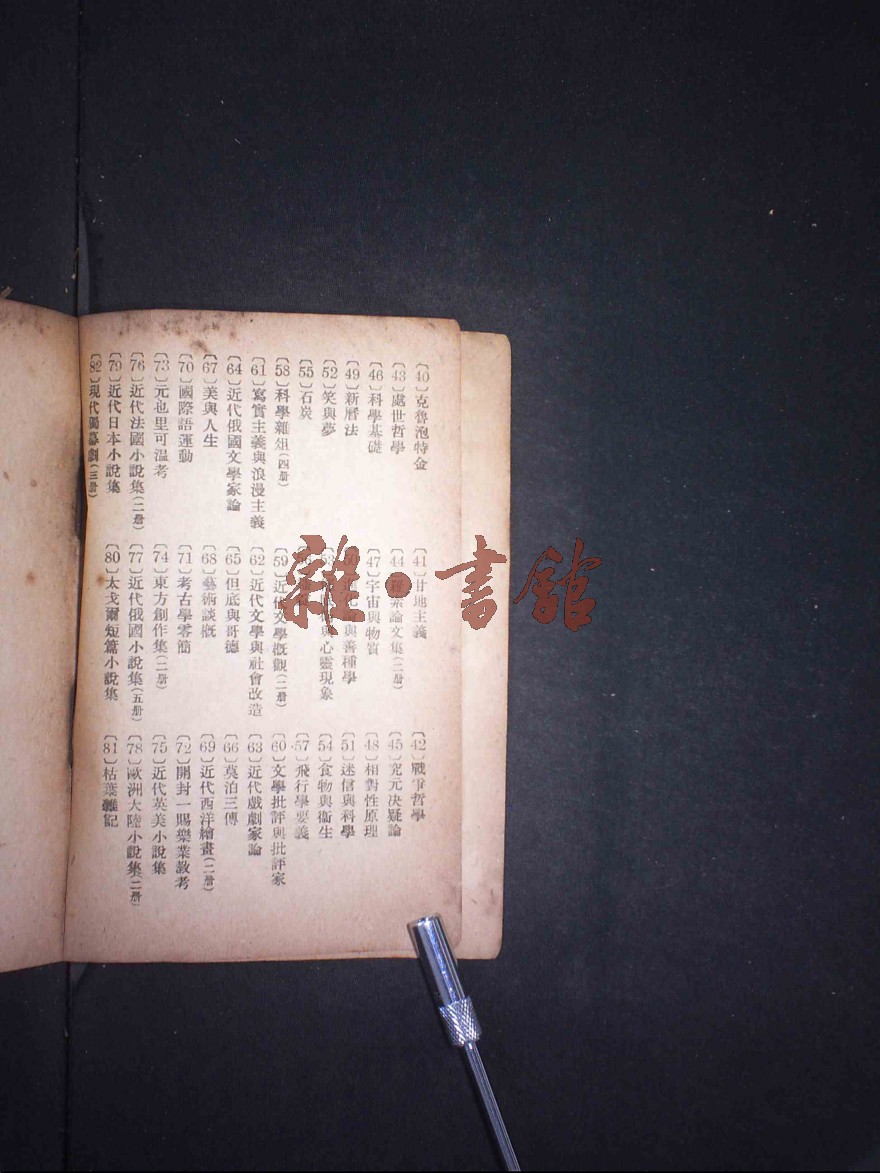 〔40〕克魯泡特金
〔41〕甘地主義
〔42〕戰爭哲學
〔43〕處世哲學
〔44〕素論文集(二册)
〔45〕究元決疑論
〔46〕科學基礎
〔47〕宇宙與物質
〔48〕相對性原理
〔49〕新曆法
與善種學
〔51〕迷信與科學
〔52〕笑與夢
與心靈現象
〔54〕食物與衞生
〔55〕石炭
〔57〕飛行學要義
〔58〕科學雜俎(四册)
〔59〕近代文學概觀(二册)
〔60〕文學批評與批評家
〔61〕寫實主義與浪漫主義
〔62〕近代文學與社會改造
〔63〕近代戲劇家論
〔64〕近代俄國文學家論
〔65〕但底與哥德
〔66〕莫泊三傳
〔67〕美與人生
〔68〕藝術談概
〔69〕近代西洋繪畫(二册)
〔70〕國際語運動
〔71〕考古學零簡
〔72〕開封一賜樂業敎考
〔73〕元也里可溫考
〔74〕東方創作集(二册)
〔75〕近代英美小說集
〔76〕近代法國小說集(二册)
〔77〕近代俄國小說集(五册)
〔78〕歐洲大陸小說集(二册)
〔79〕近代日本小說集
〔80〕太戈爾短篇小說集
〔81〕枯葉雜記
〔82〕現代獨幕劇(三册)
雜·書館